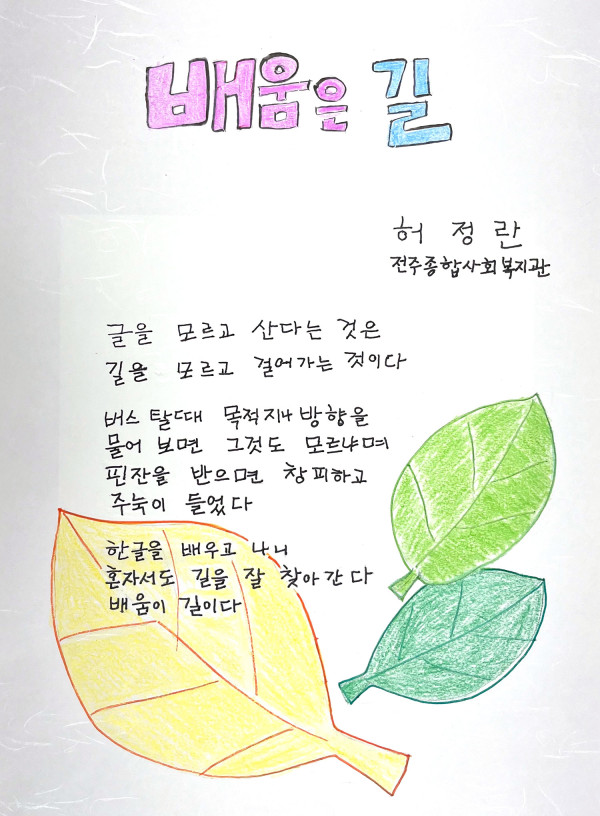 배움은 길
허정란
전주종합사회복지관
글을 모르고 산다는 것은
길을 모르고 걸어가는 것이다
버스 탈때 목적지나 방향을
물어 보면 그것도 모르냐며
핀잔을 받으면 창피하고
주눅이 들었다
한글을 배우고 나니
혼자서도 길을 잘 찾아간다
배움이 길이다